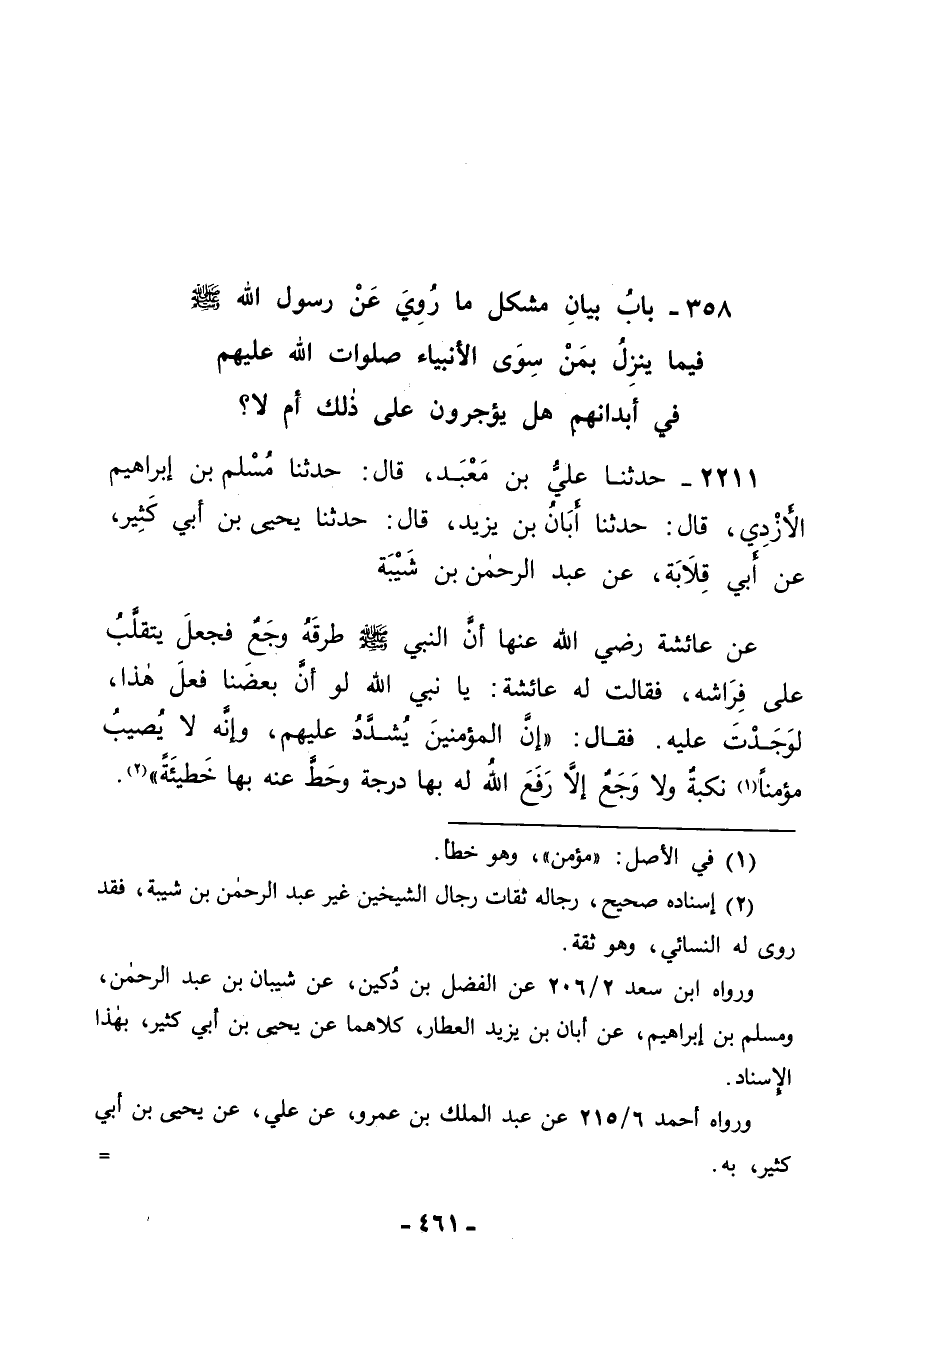 ٣٥٨ـ بابُ بيانِ مشكل ما رُوِيَ عَنْ رسول الله ﷺ
فيما ينزِلُ بمَنْ سِوَى الأنبياء صلوات الله عليهم
في أبدانهم هل يؤجرون على ذٰلك أم لا؟
٢٢١١ ـ حدثنا عليُّ بن مَعْبَد، قال: حدثنا مُسْلم بن إبراهيم
الأَزْدِي، قال: حدثنا أَبَانُ بن يزيد، قال: حدثنا يحيى بن أبي كَثِير،
عن أَبي قِلَابَة، عن عبد الرحمٰن بن شَيْبَة
عن عائشة رضي الله عنها أنَّ النبي ﷺ طرقَهُ وجَعٌ فجعلَ يتقلَّبُ
على فِرَاشه، فقالت له عائشة: يا نبي الله لو أنَّ بعضَنا فعلَ هٰذا،
لوَجَدْتَ عليه. فقال: «إنَّ المؤمنينَ يُشدَّدُ عليهم، وإنَّه لا يُصيبُ
مؤمناً(١) نكبةٌ ولا وَجَعٌ إلاَّ رَفَعَ اللهُ له بها درجة وحَطَّ عنه بها خَطيئَةً»(٢).
(١) في الأصل: «مؤمن»، وهو خطأ.
(٢) إسناده صحيح، رجاله ثقات رجال الشيخين غير عبد الرحمٰن بن شيبة، فقد
روى له النسائي، وهو ثقة.
ورواه ابن سعد ٢٠٦/٢ عن الفضل بن دُكين، عن شيبان بن عبد الرحمٰن،
ومسلم بن إبراهيم، عن أبان بن يزيد العطار، كلاهما عن يحيى بن أبي كثير، بهٰذا
الإسناد.
ورواه أحمد ٢١٥/٦ عن عبد الملك بن عمرو، عن علي، عن يحيى بن أبي
كثير، به. =
ـ ٤٦١ ـ